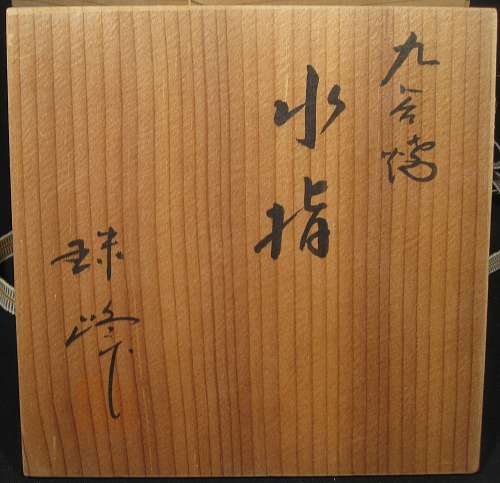 九谷焼
水指
珠峰